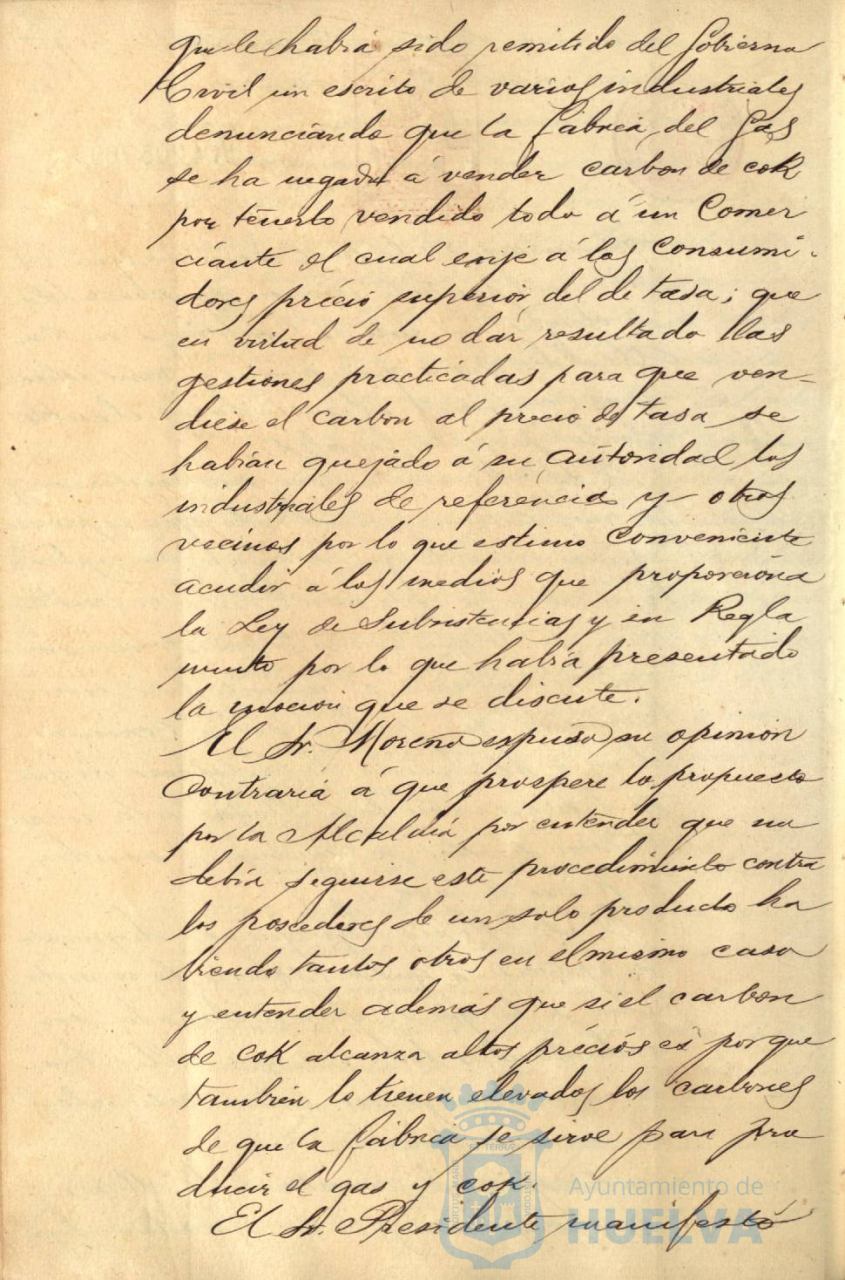 que le habia sido remitido del Gobierno
Civil un escrito de varios industriales
denunciando que la fábrica del Gas
se ha negado á vender carbón de coK
por tenerlo vendido todo á un Comer
ciante el cual exije á los Consumi-
dores précio superior del de tasa; que
en virtud de no dár resultado llas
gestiones practicadas para que ven-
diese el carbon al precio de tasa se
habian quejádo á su autoridad los
industriales de referéncia y otros
vecinos por lo que estimo conveniente
acudir á los medios que proporciona
la Ley de Subsistencias y su Regla
mento por lo que había presentado
la mocion que se discute.
El Sr. Moreno expuso su opinión
Contraria á que prospere lo propuesto
por la Alcaldia por entender que no
debia seguirse este procedimiento contra
los poseedores de un solo producto ha
biendo tantos otros en el mismo caso
y entender además que si el carbon
de coK alcanza altos précios es por que
tambien lo tienen elevados los carbones
de que la fábrica se sirve para pro
ducir el gas y cok.
El Sr. Presidente manifestó
Ayuntamiento de
HUELVA